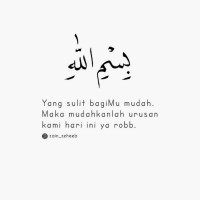 بِسْمِ اللّٰهِ
Yang sulit bagiMu mudah.
Maka mudahkanlah urusan
kami hari ini ya robb.
zain_zahaab